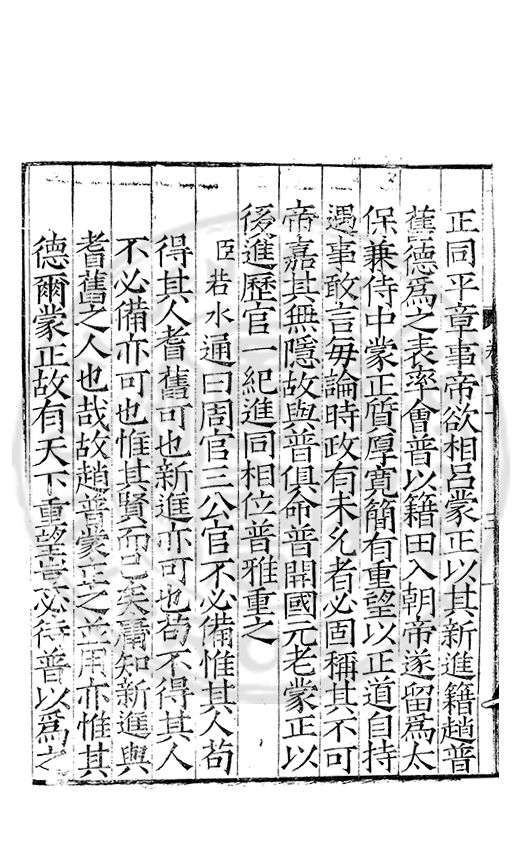 正同平章事帝欲相呂蒙正以其新進籍趙普
舊德爲之表率會普以籍田入朝帝遂留爲太
保兼侍中蒙正質厚寬簡有重望以正道自持
遇事敢言每論時政有未允者必固稱其不可
帝嘉其無隱故與普俱命普開國元老蒙正以
後進歷官一紀進同相位普雅重之
臣若水通曰周官三公官不必備惟其人茍
得其人耆舊可也新進亦可也茍不得其人
不必備亦可也惟其賢而已矣庸知新進與
耆舊之人也哉故趙普蒙正之並用亦惟其
德爾蒙正故有天下重望豈必待普以爲之